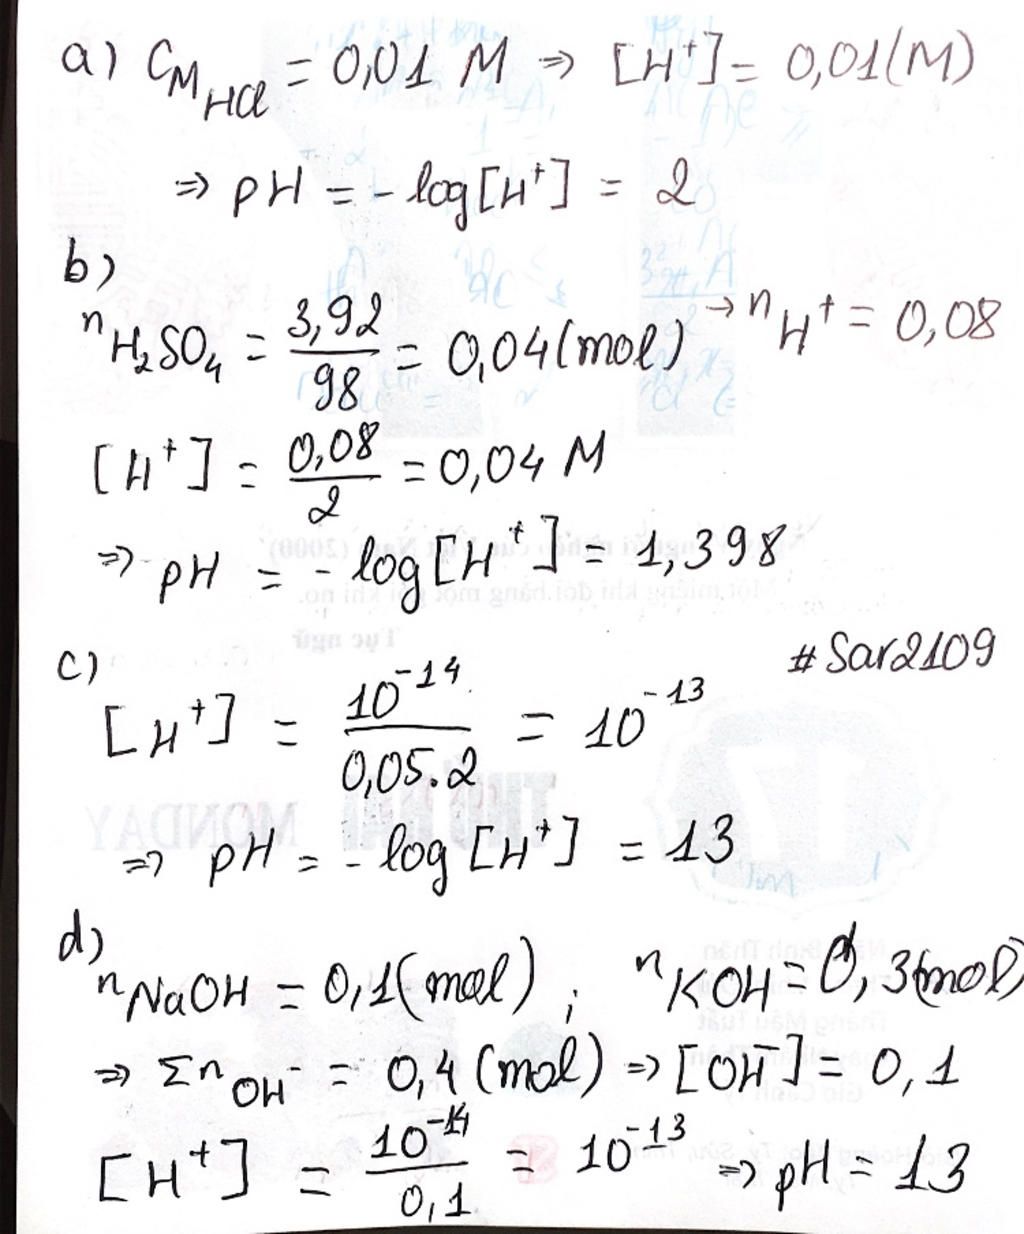 a) C_M_HCl = 0,01 M ⇒ [H⁺] = 0,01(M)
⇒ pH = - log[H⁺] = 2
b)
n_H₂SO₄ = 3,92/98 = 0,04(mol) → n_H⁺ = 0,08
[H⁺] = 0,08/2 = 0,04 M
⇒ pH = - log[H⁺] = 1,398
#Sar2109
c)
[H⁺] = 10⁻¹⁴/0,05.2 = 10⁻¹³
⇒ pH = - log[H⁺] = 13
d)
n_NaOH = 0,1(mol) ; n_KOH = 0,3(mol)
⇒ Σn_OH⁻ = 0,4(mol) ⇒ [OH⁻] = 0,1
[H⁺] = 10⁻¹⁴/0,1 = 10⁻¹³ ⇒ pH = 13
MONDAY
Tục ngữ